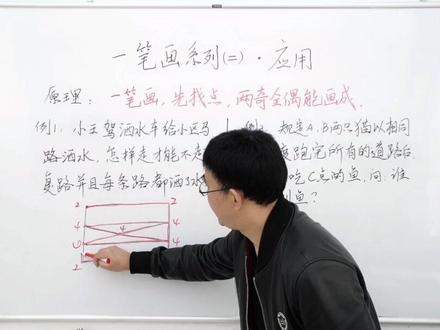 一笔画系列(二)·应用
原理：一笔画，先找点，两奇全偶能画成.
例1. 小王驾洒水车给小区马
路洒水，怎样走才能不走
复路并且每条路都洒了水
规定A、B两只猫以相同
度跑完所有的道路后
吃C点的鱼，问：谁
鱼？
2 2
4 4 4
4
2